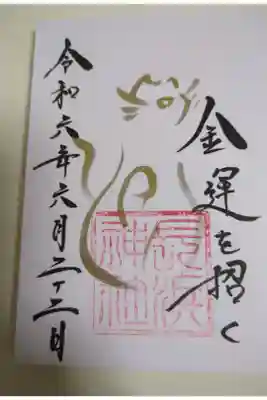 金運を招く
長浜神社
令和六年六月二十二日